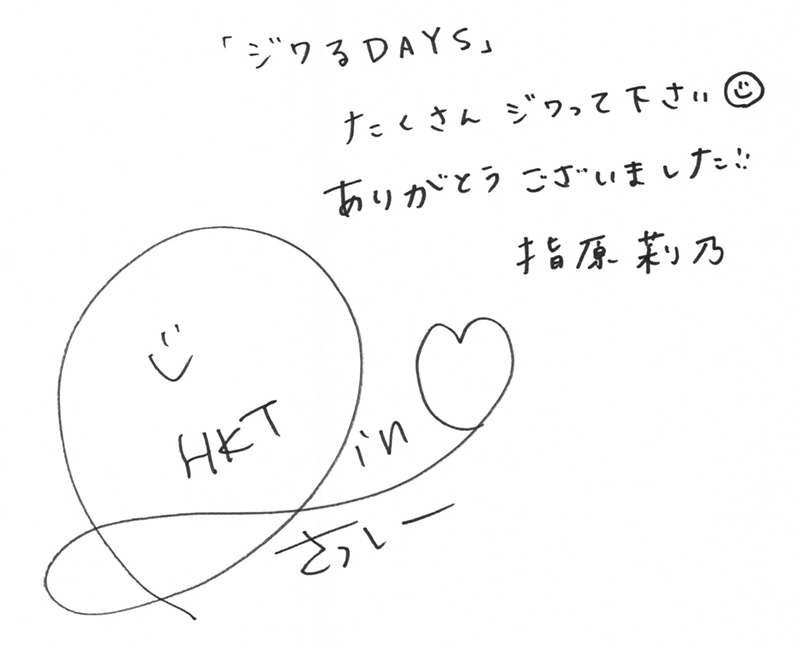 「ジワるDAYS」
たくさん ジワって下さい
ありがとうございました
指原莉乃
HKT
in
さっしー